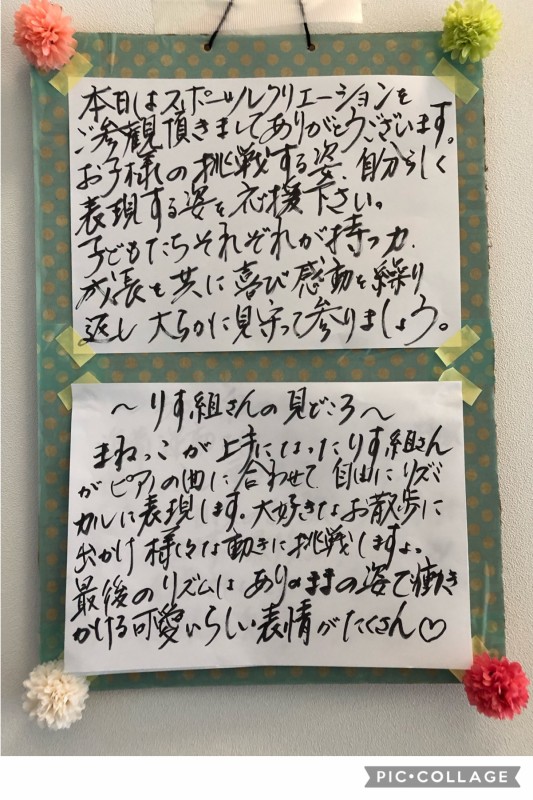 本日はスポーツレクリエーションを
ご参観頂きましてありがとうございます。
お子様の挑戦する姿、自分らしく
表現する姿を応援下さい。
子どもたちそれぞれが持つ力、
成長を共に喜び感動を繰り
返し大らかに見守って参りましょう。
〜りす組さんの見どころ〜
まねっこが上手になったりす組さん
がピアノの曲に合わせて自由にリズミ
カルに表現します。大好きなお散歩に
出かけ様々な動きに挑戦しますよ。
最後のリズムはありのままの姿で働き
かける可愛いらしい表情がたくさん♡
PIC•COLLAGE